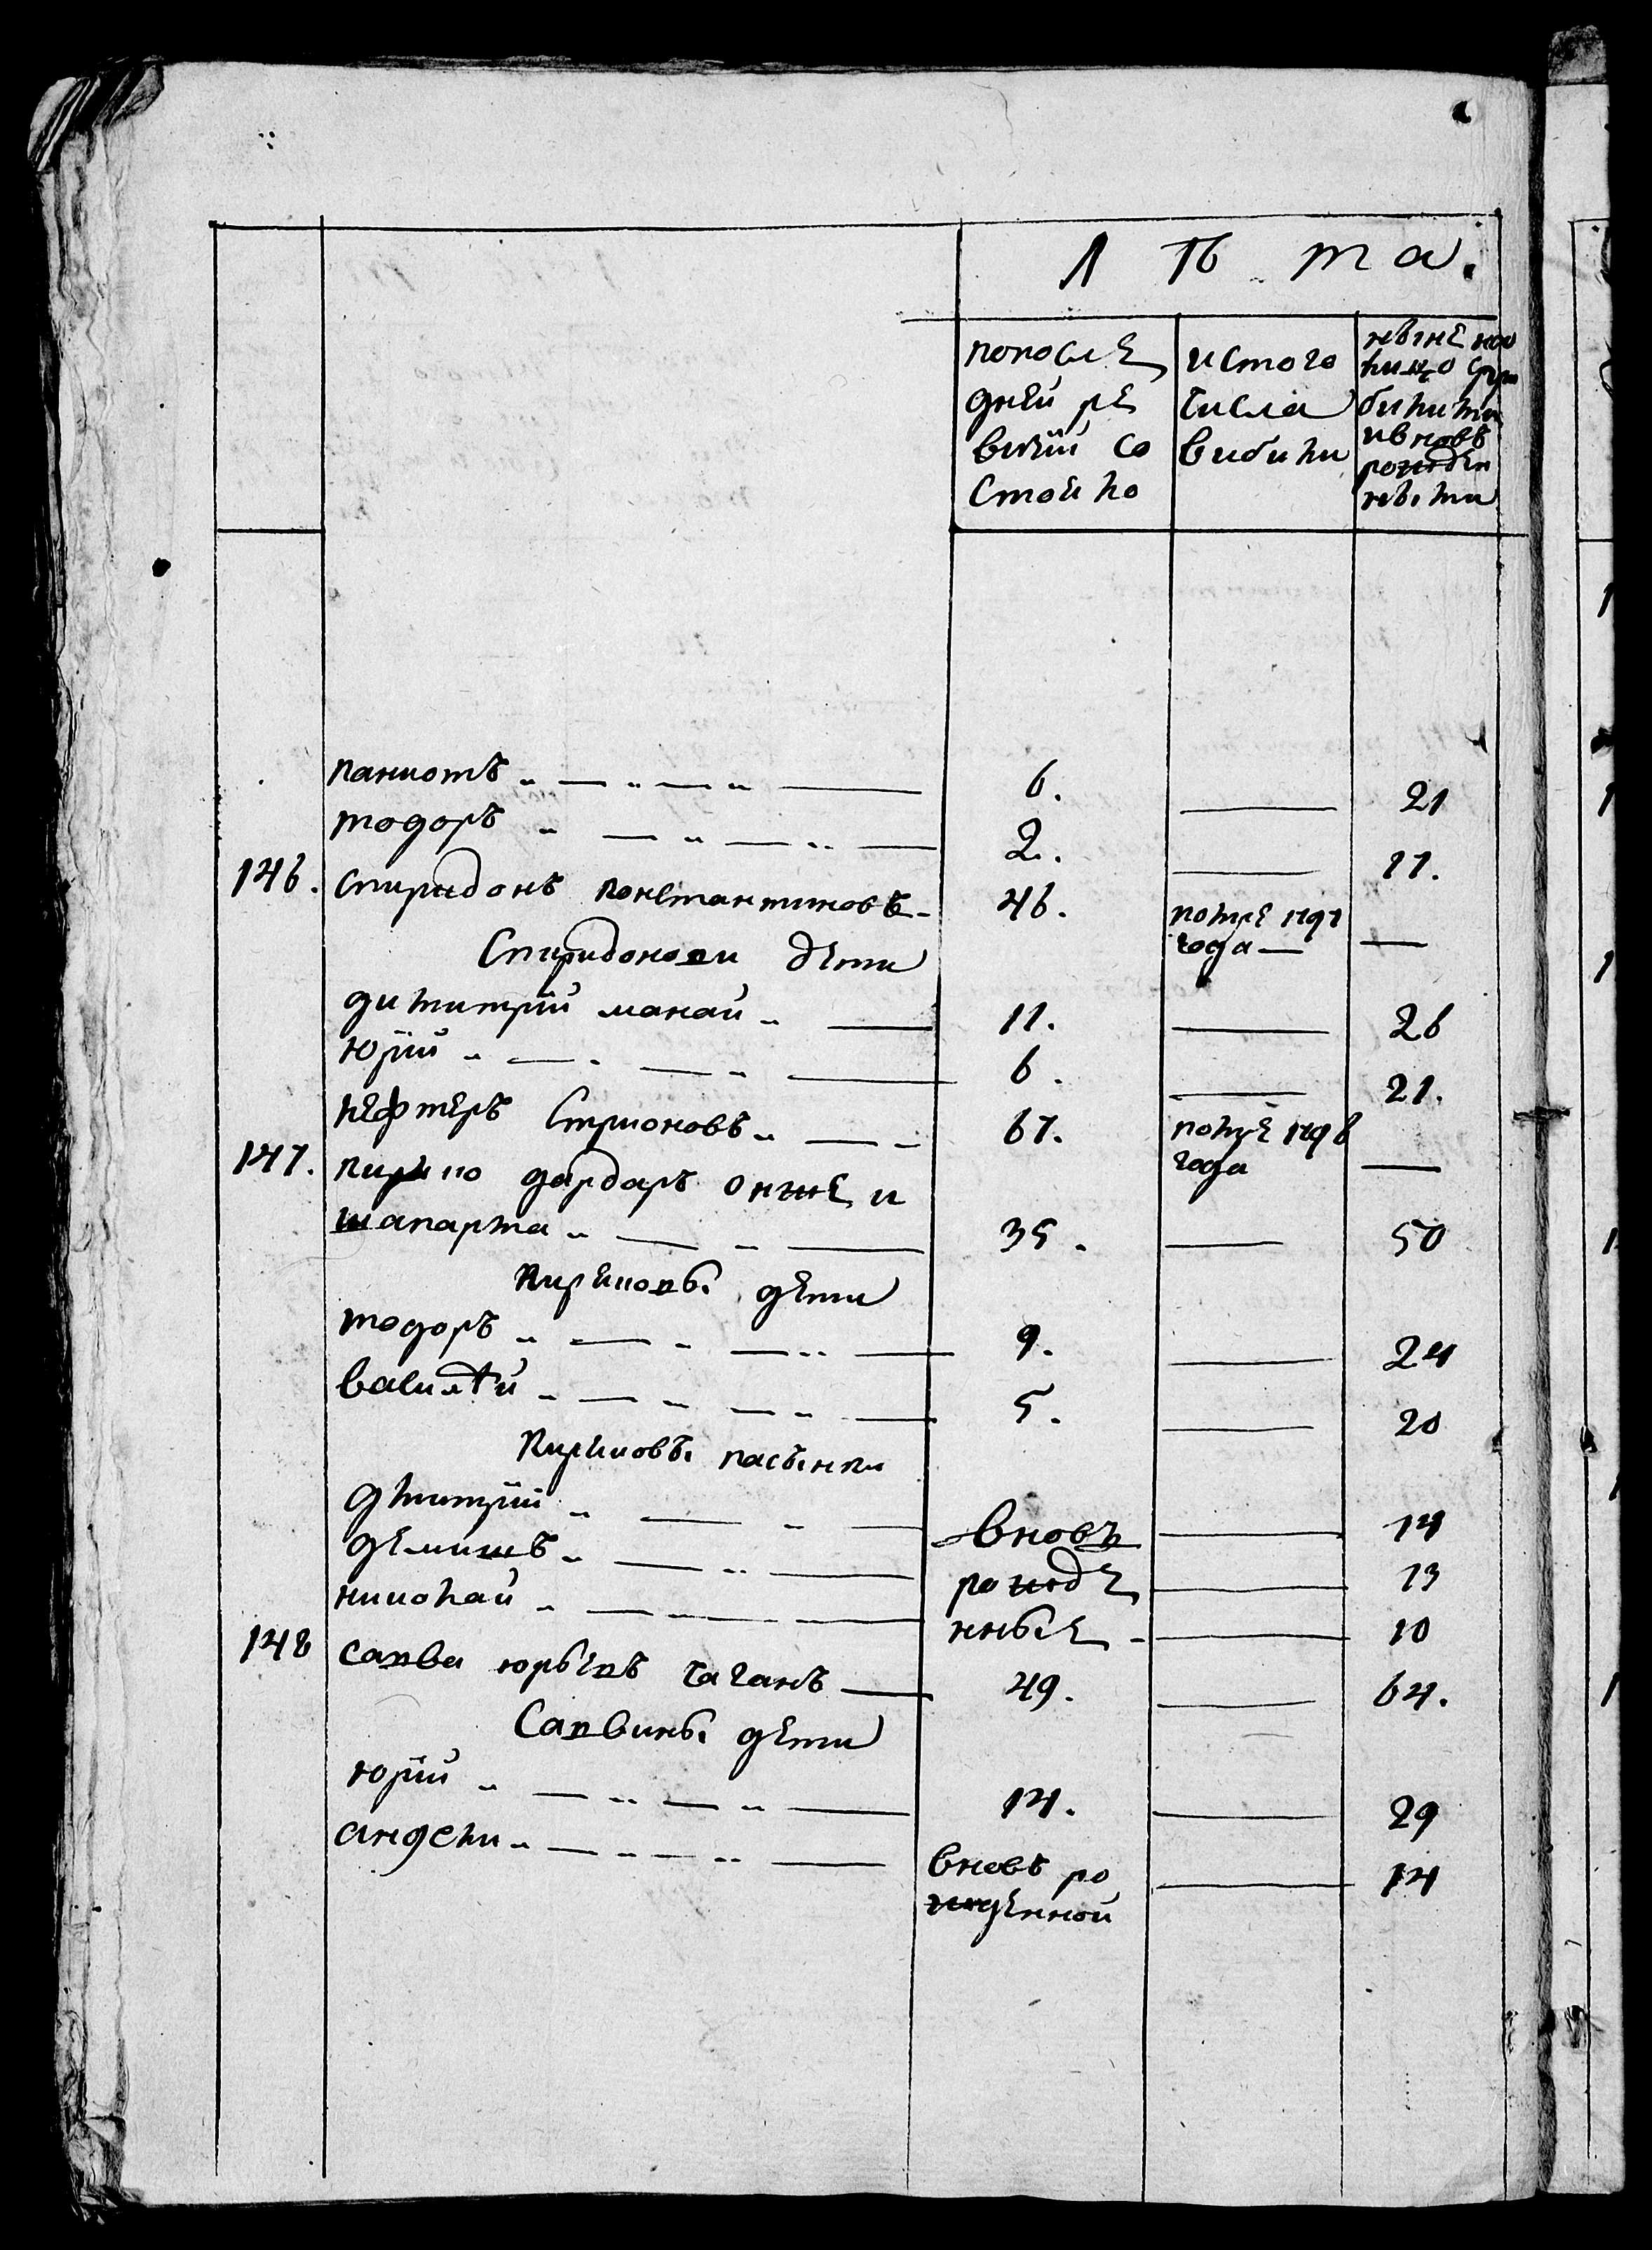 лѣта.
попосле
дней ре
визіи со
стояло
истого
числа
выбыли
ныне на
лицо
были
ивновъ
рожден
ными
паниотъ 6. — 21
тодоръ 2. — 11.
146. спиридонъ константиновъ 46. помре 1791 года —
Спиридонови дети
димитрій манай 11. — 26
юрій 6. — 21.
кефтеръ Стрионовъ 67. помре 1796 года —
147. кирико дардаръ онже и
шапарма 35. — 50
Кириковы дети
тодоръ 9. — 24
василій 5. — 20
Кириковы пасынки
дмитрій вновъ — 14
демишъ рожде — 13
николай нные — 10
148 савва юрьевъ чаганъ 49. — 64.
Саввины дети
юрій 14. — 29
андели вновъ ро — 14
жденной